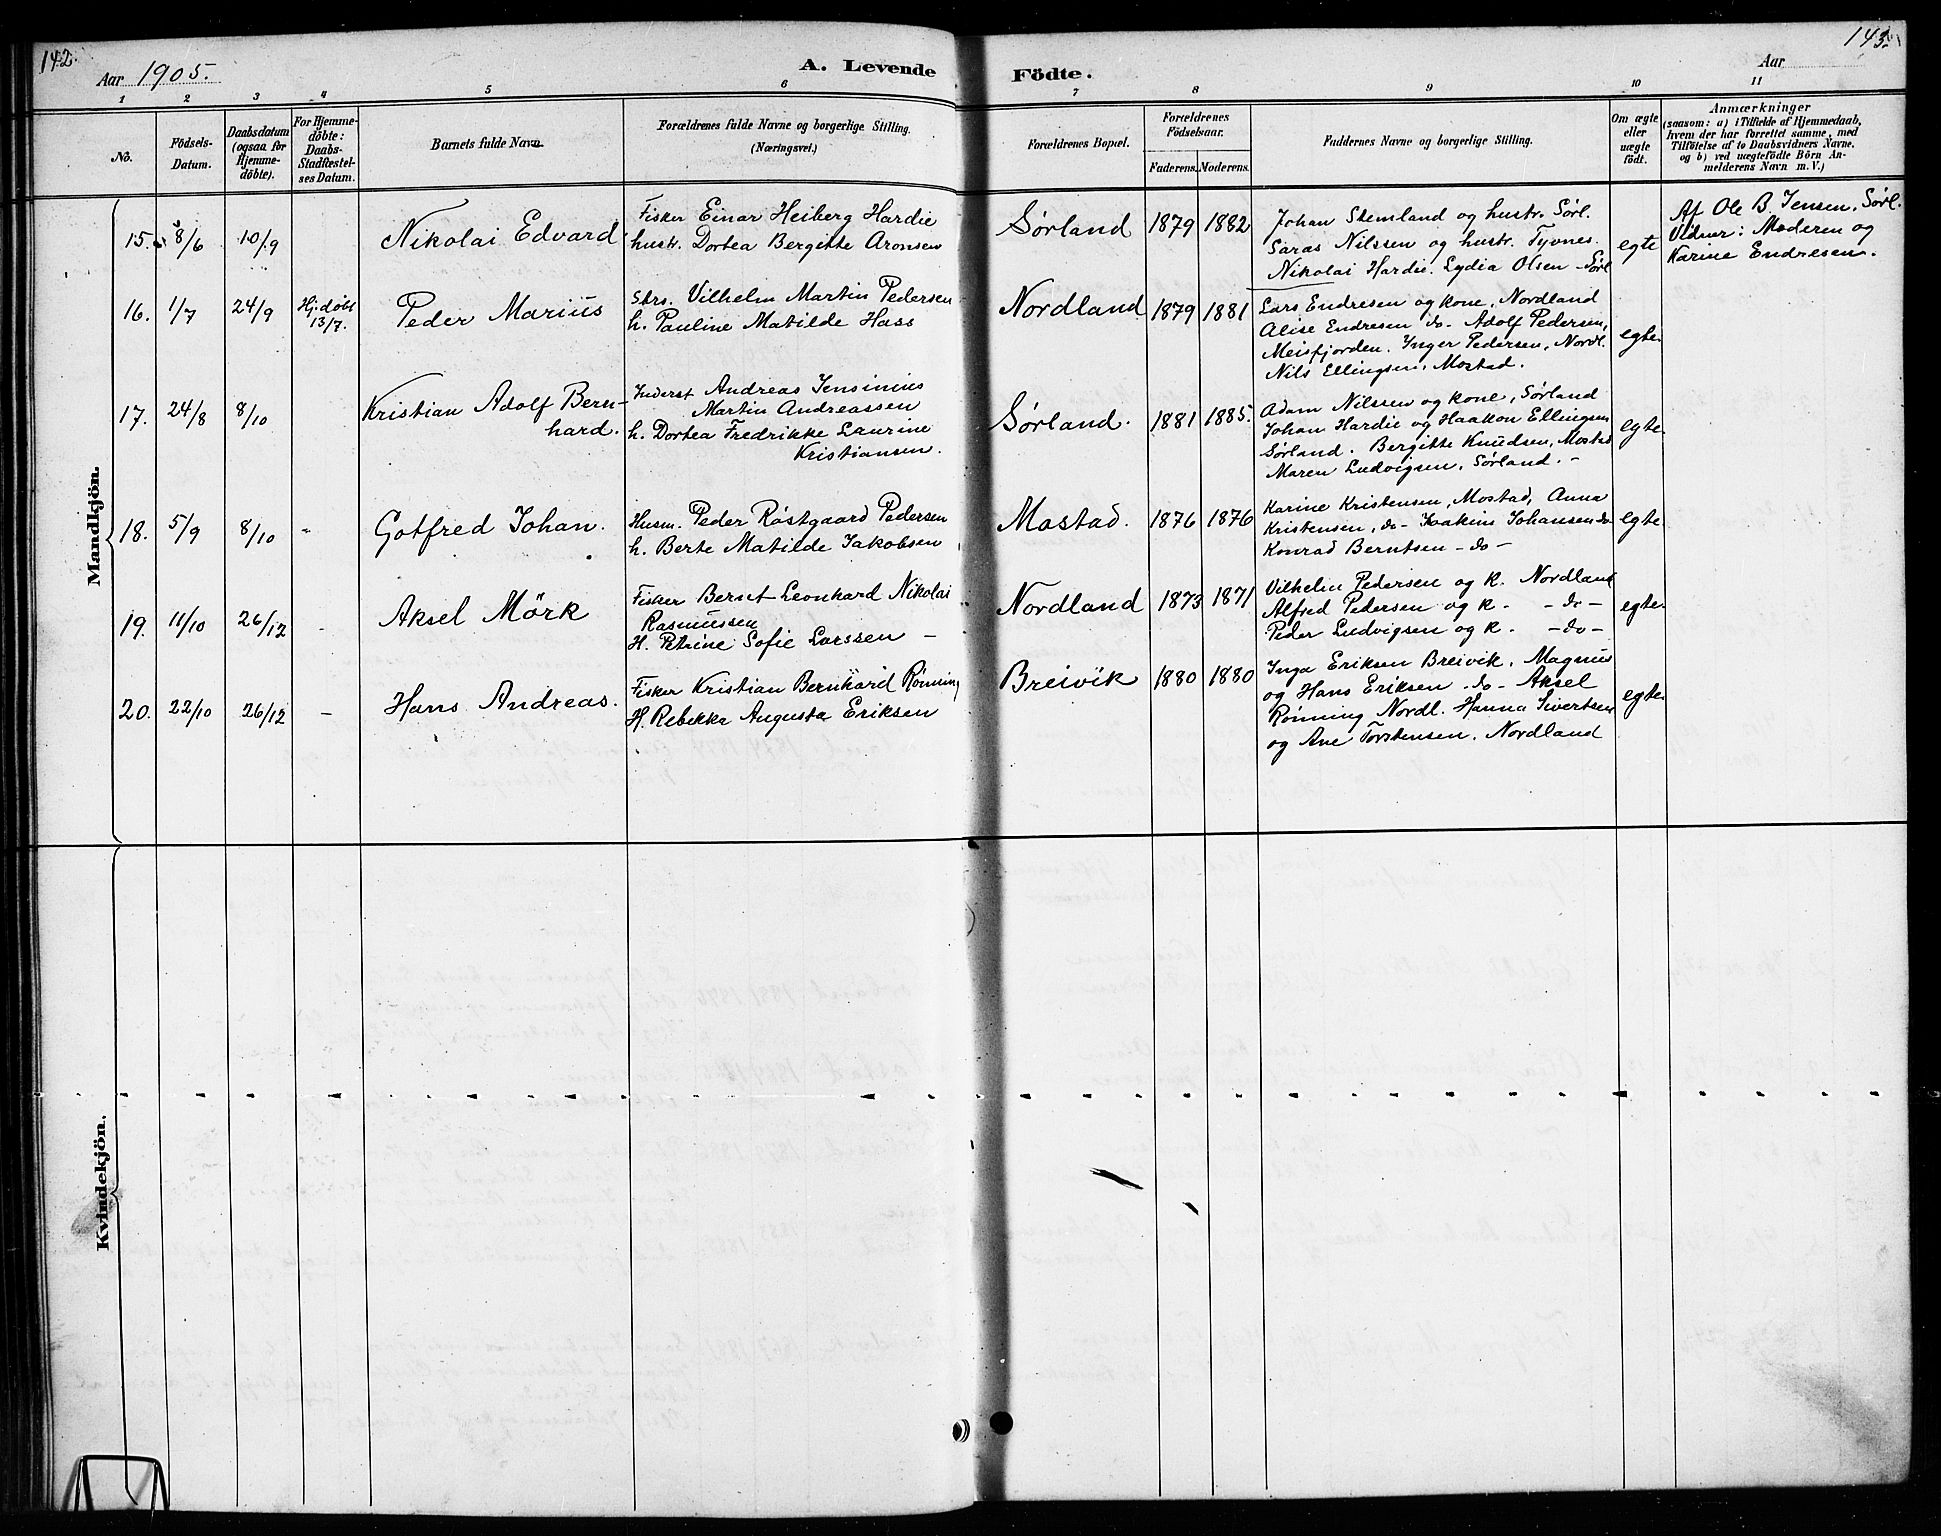 142.
Aar 1905.
A. Levende
Födte.
Aar
143.
1 2 3 4 5 6 7 8 9 10 11
No.
Födsels-
Datum.
Daabsdatum
(ogsaa for
Hjemme-
döbte).
For Hjemme-
döbte:
Daabs-
Stadfæstel-
ses Datum.
Barnets fulde Navn.
Forældrenes fulde Navne og borgerlige Stilling.
(Næringsvei.)
Forældrenes Bopæl.
Forældrenes
Födselsaar.
Faderens. Moderens.
Faddernes Navne og borgerlige Stilling.
Om ægte
eller
uægte
födt.
Anmærkninger
(saasom: a) i Tilfælde af Hjemmedaab,
hvem der har forrettet samme, med
Tilföielse af to Daabsvidners Navne.
og b) ved uægtefödte Börn An-
melderens Navn m. V.)
Mandkjön.
15. 8/6 10/9
Nikolai Edvard
Fisker Einar Heiberg Hardie
hustr. Dortea Bergitte Aronsen
Sørland 1879 1882
Johan Stemland og hustr. Sørl.
Saras Nilssen og hustr. Tyvnes.
Nikolai Hardie. Lydia Olsen - Sørl
egte
Af Ole B. Jensen, Sørl.
Vidner: Moderen og
Karine Endresen.
16. 1/7 24/9
Hj. døbt
13/7.
Peder Marius
Vilhelm Martin Pedersen
h. Pauline Matilde Hass
Nordland 1879 1881
Lars Endresen og kone, Nordland
Alise Endresen do - Adolf Pedersen,
Meisfjorden. Inger Pedersen, Nordl.
Nils Ellingsen, Mostad.
egte.
17. 24/8 8/10
Kristian Adolf Bern-
hard.
Inderst Andreas Jensinius
Martin Andreassen
h. Dortea Fredrikke Laurine
Kristiansen.
Sørland. 1881 1885.
Adam Nilssen og kone, Sørland
Johan Hardie og Haakon Ellingsen
Sørland. Bergitte Knudsen, Mostad
Maren Ludvigsen, Sørland. -
egte.
18. 5/9 8/10 -
Gotfred Johan.
Husm. Peder Røstgaard Pedersen
h. Berte Matilde Jakobsen
Mostad. 1876 1876
Karine Kristensen, Mostad, Anna
Kristensen, do - Joakim Johansen do
Konrad Berntsen - do -
egte
19. 11/10 26/12 -
Aksel Mörk
Fisker Bernt Leonhard Nikolai
Rasmussen
H. Petrine Sofie Larssen -
Nordland 1873 1871
Vilhelm Pedersen og k. Nordland
Alfred Pedersen og k. - do -
Peder Ludvigsen og k. - do -
egte.
20. 22/10 26/12 -
Hans Andreas.
Fisker Kristian Bernhard Rønning
H. Rebekka Augusta Eriksen
Breivik 1880 1880
Inga Eriksen Breivik, Magnus
og Hans Eriksen do - Aksel
Rønning Nordl. Hanna Sivertsen
og Ane Torstensen, Nordland
egte.
Kvindekjön.